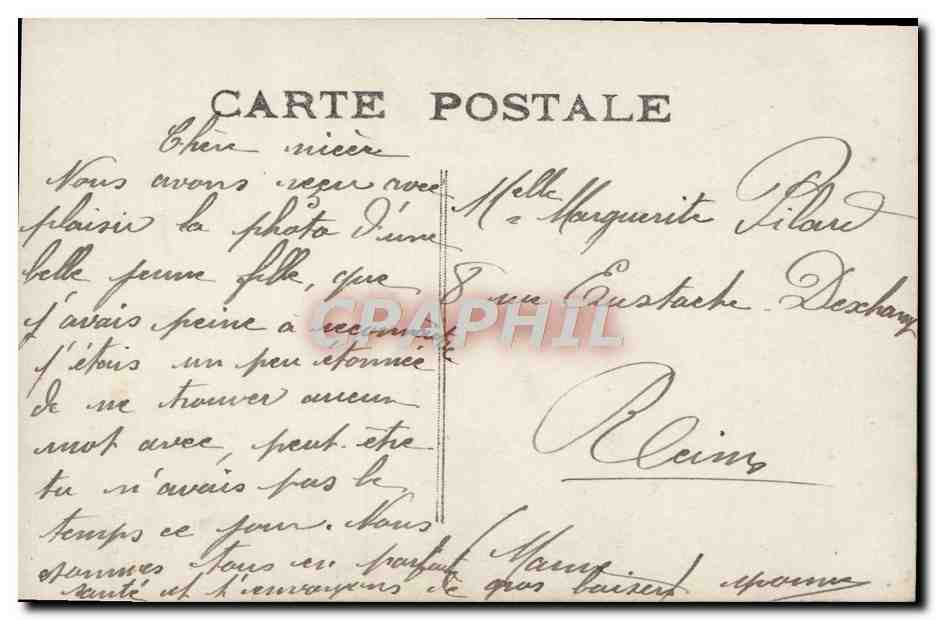 CARTE POSTALE
Chère nièce
Nous avons reçu avec
plaisir la photo d'une
belle jeune fille, que
j'avais peine à reconnaître
j'étais un peu étonnée
de ne trouver aucun
mot avec, peut-être
tu n'avais pas le
temps ce jour. Nous
sommes tous en parfait
santé et t'envoyons de gros baisers
Melle Marguerite Pilard
8 rue Eustache Deschamps
Reims
(Marne)
CPAPHIL